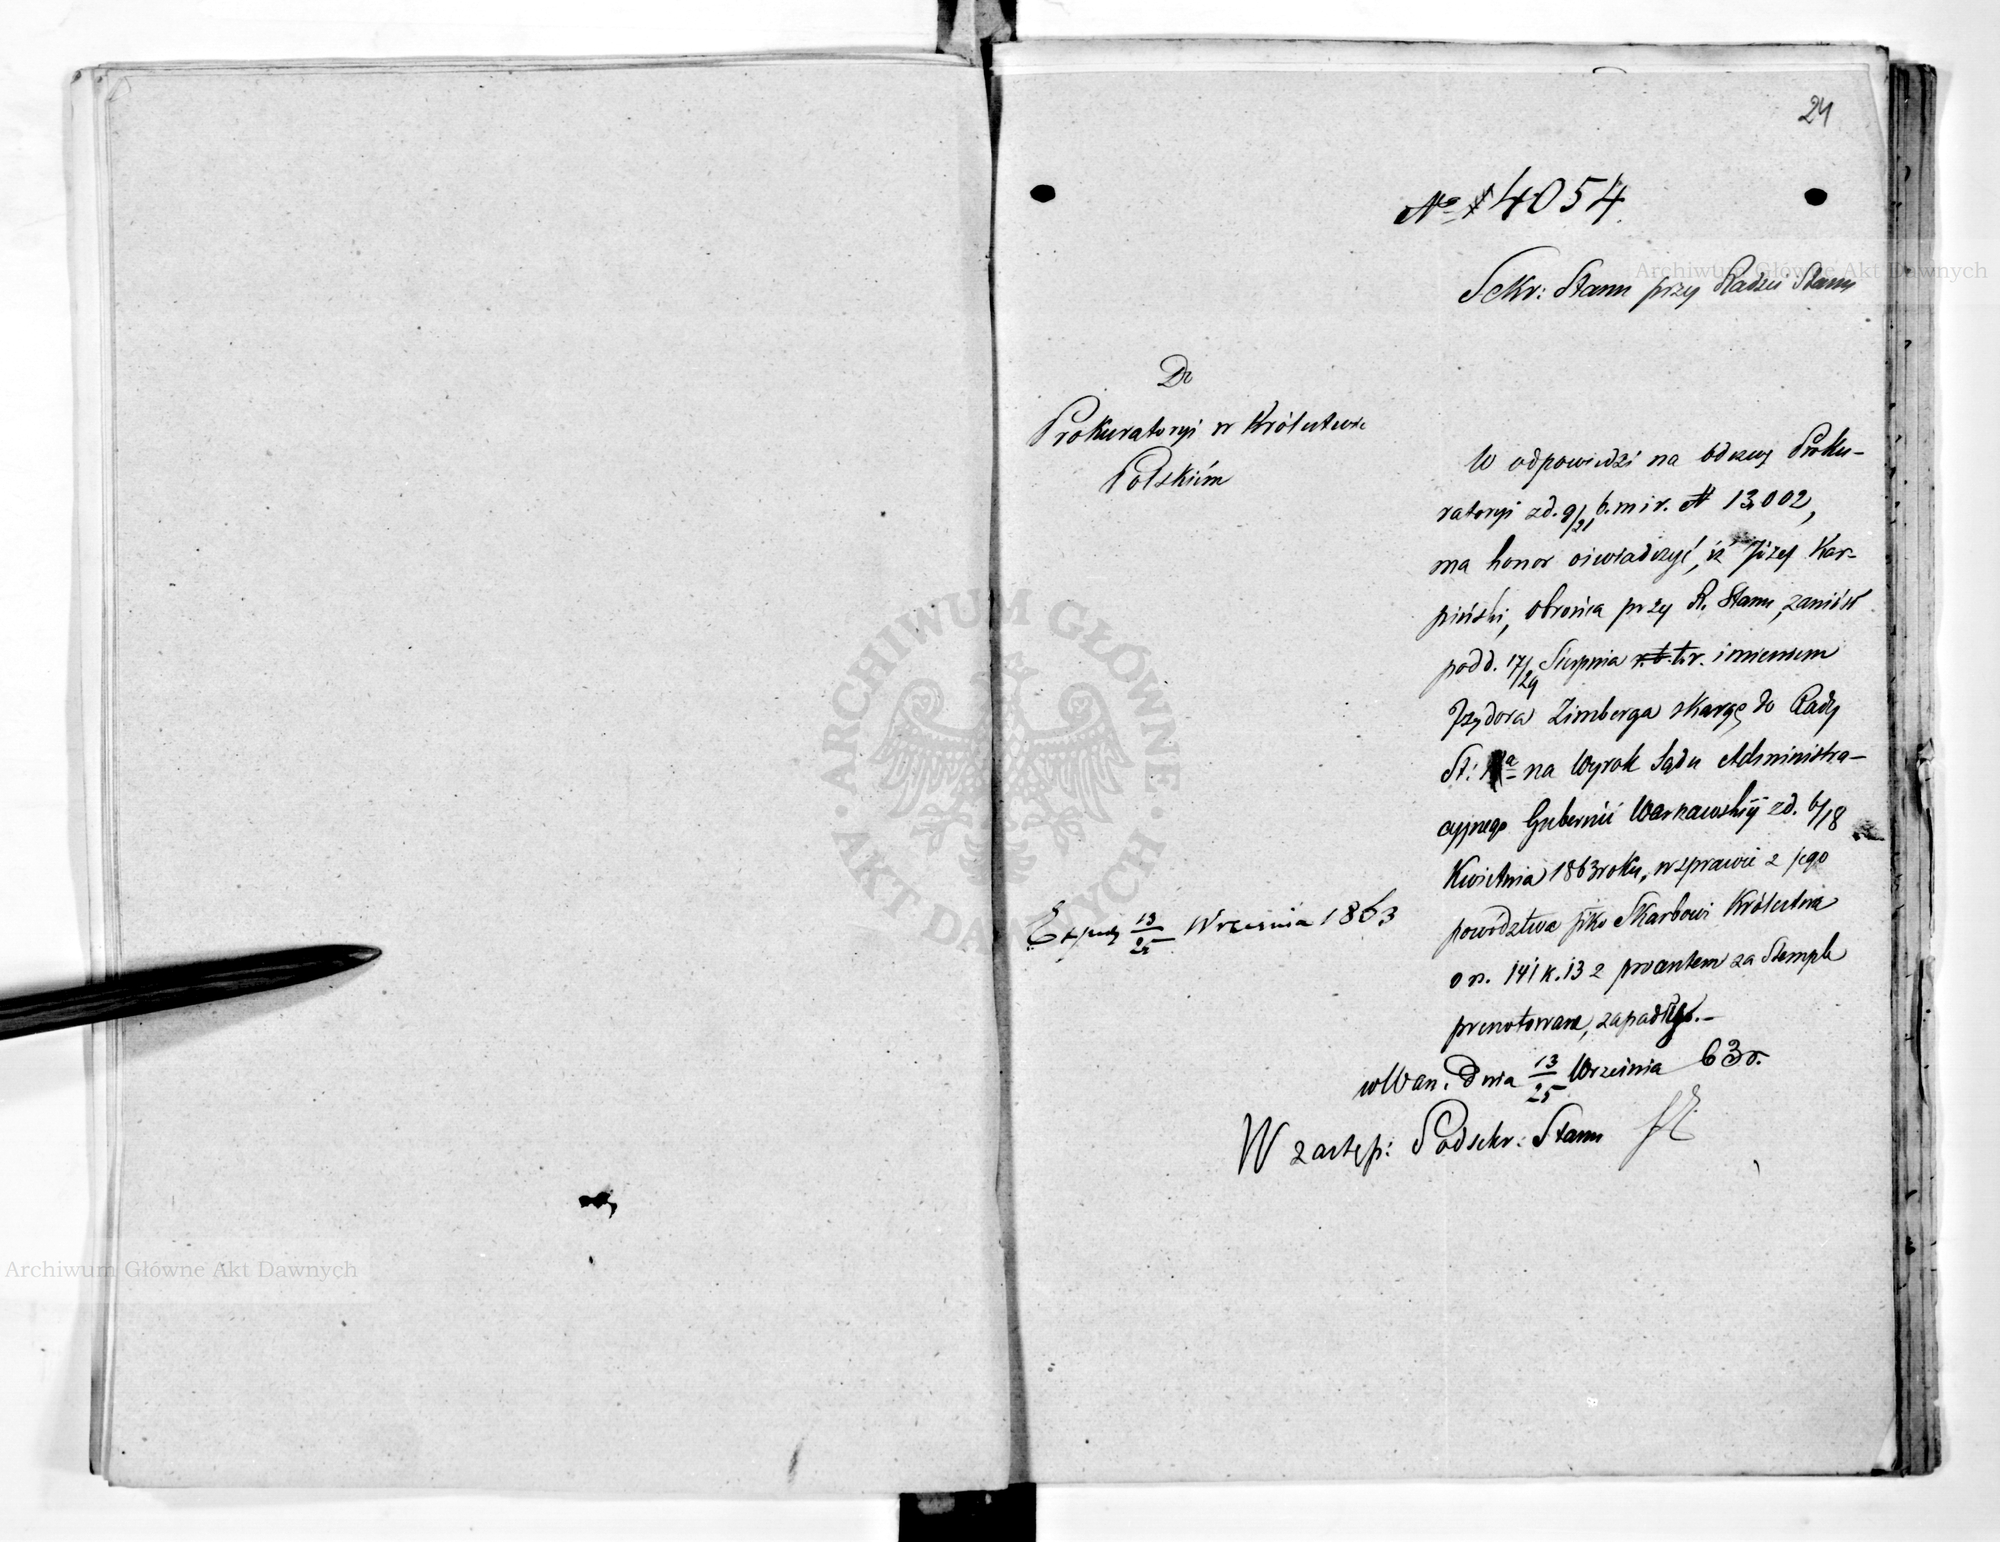 24
No 4054
Sekr: Stanu przy Radzie Stanu
Do
Prokuratoryi w Królestwie
Polskiém
W odpowiedzi na odezwę Proku-
ratoryi z d. 9/21 b. m i r. N 13,002,
ma honor oświadczyć, iż Józef Kar-
piński, obrońca przy R. Stanu, zaniósł
pod d. 17/29 Sierpnia t. r. imieniem
Izydora Zimberga skargę do Rady
St: na Wyrok Sądu Administra-
cyjnego Gubernii Warszawskiéj z d. 6/18
Kwietnia 1863 roku, w sprawie z jego
powództwa pko Skarbowi Królestwa
o rs. 141 k. 13 z procentem za Stemple
prenotowane, zapadłego.-
w War. dnia 13/25 Września 63 r.
W zastęp: Podsekr: Stanu
Exped 13/25 Września 1863
ARCHIWUM GŁÓWNE
AKT DAWNYCH
Archiwum Główne Akt Dawnych
Archiwum Główne Akt Dawnych